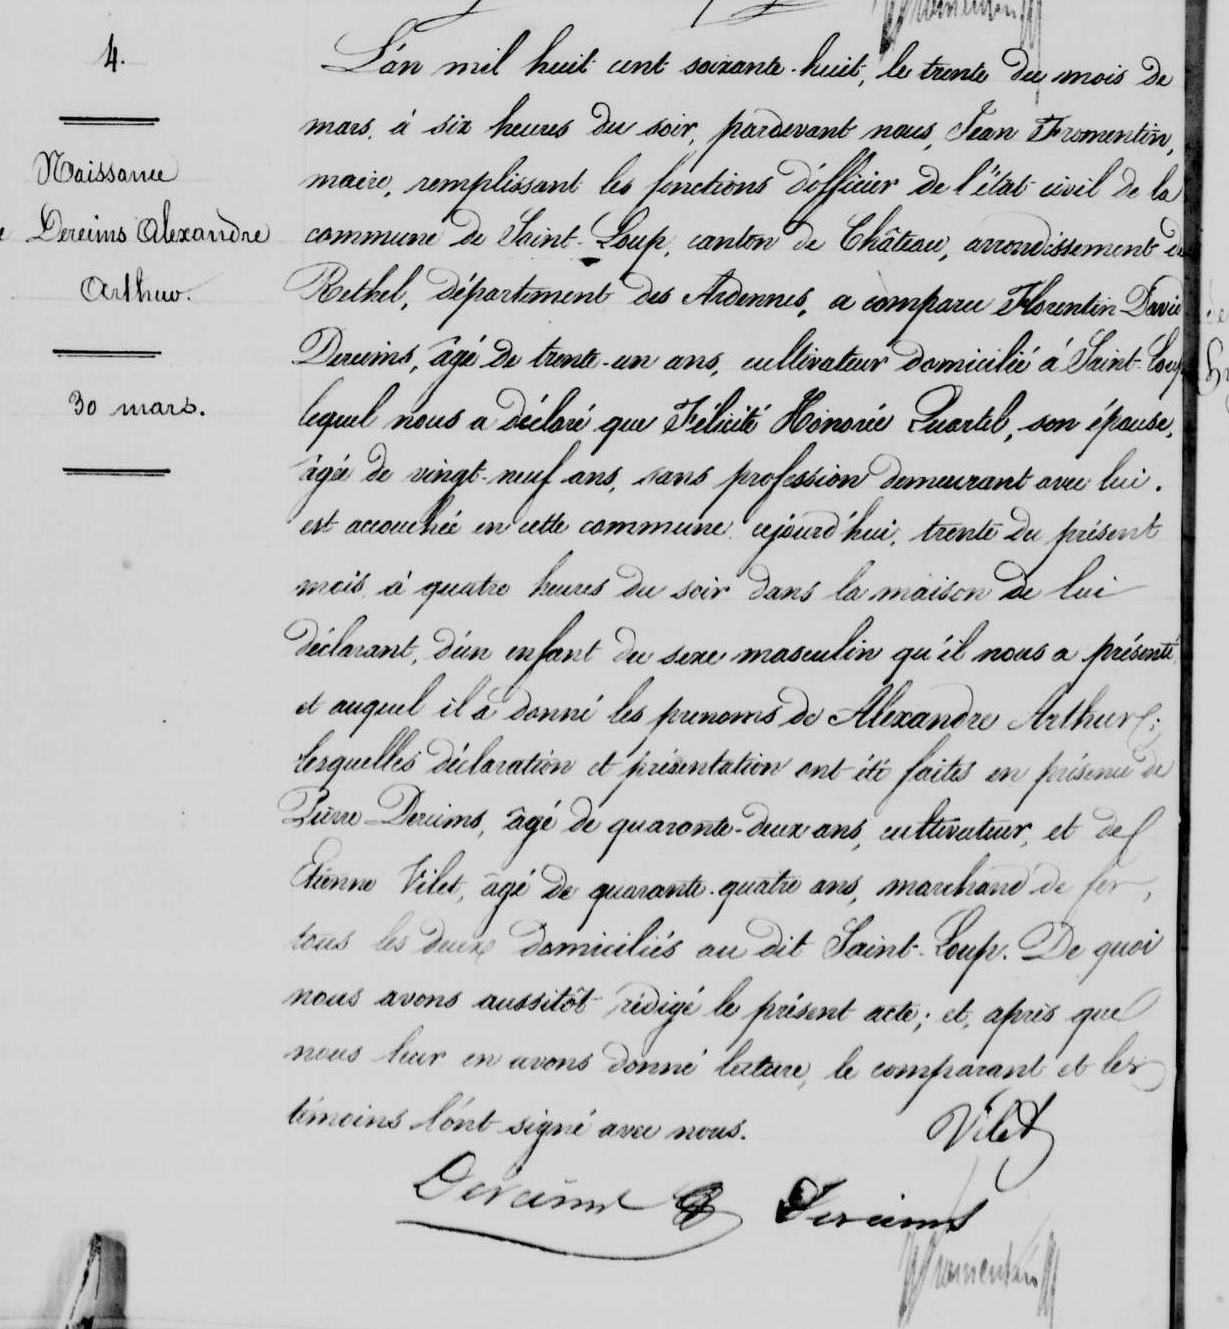 4.
Naissance
Dereims Alexandre
Arthur.
30 mars.
L'an mil huit cent soixante-huit, le trente du mois de
mars, à six heures du soir, pardevant nous, Jean Fromentin,
maire, remplissant les fonctions d'officier de l'état civil de la
commune de Saint-Loup, canton de Château, arrondissement de
Rethel, département des Ardennes, a comparu Florentin David
Dereims, âgé de trente-un ans, cultivateur domicilié à Saint-Loup
lequel nous a déclaré que Félicité Honorée Quartel, son épouse,
âgée de vingt-neuf ans, sans profession demeurant avec lui.
est accouchée en cette commune cejourd'hui, trente du présent
mois, à quatre heures du soir dans la maison de lui
déclarant, d'un enfant du sexe masculin qu'il nous a présenté
et auquel il a donné les prenoms de Alexandre Arthur;
lesquelles déclaration et présentation ont été faites en présence de
Pierre Dereims, âgé de quarante-deux ans, cultivateur, et de
Etienne Vilet, âgé de quarante-quatre ans, marchand de fer,
tous les deux domiciliés au dit Saint-Loup. De quoi
nous avons aussitôt rédigé le présent acte; et, après que
nous leur en avons donné lecture, le comparant et les
témoins l'ont signé avec nous.
Vilet
Dereims Dereims
Fromentin